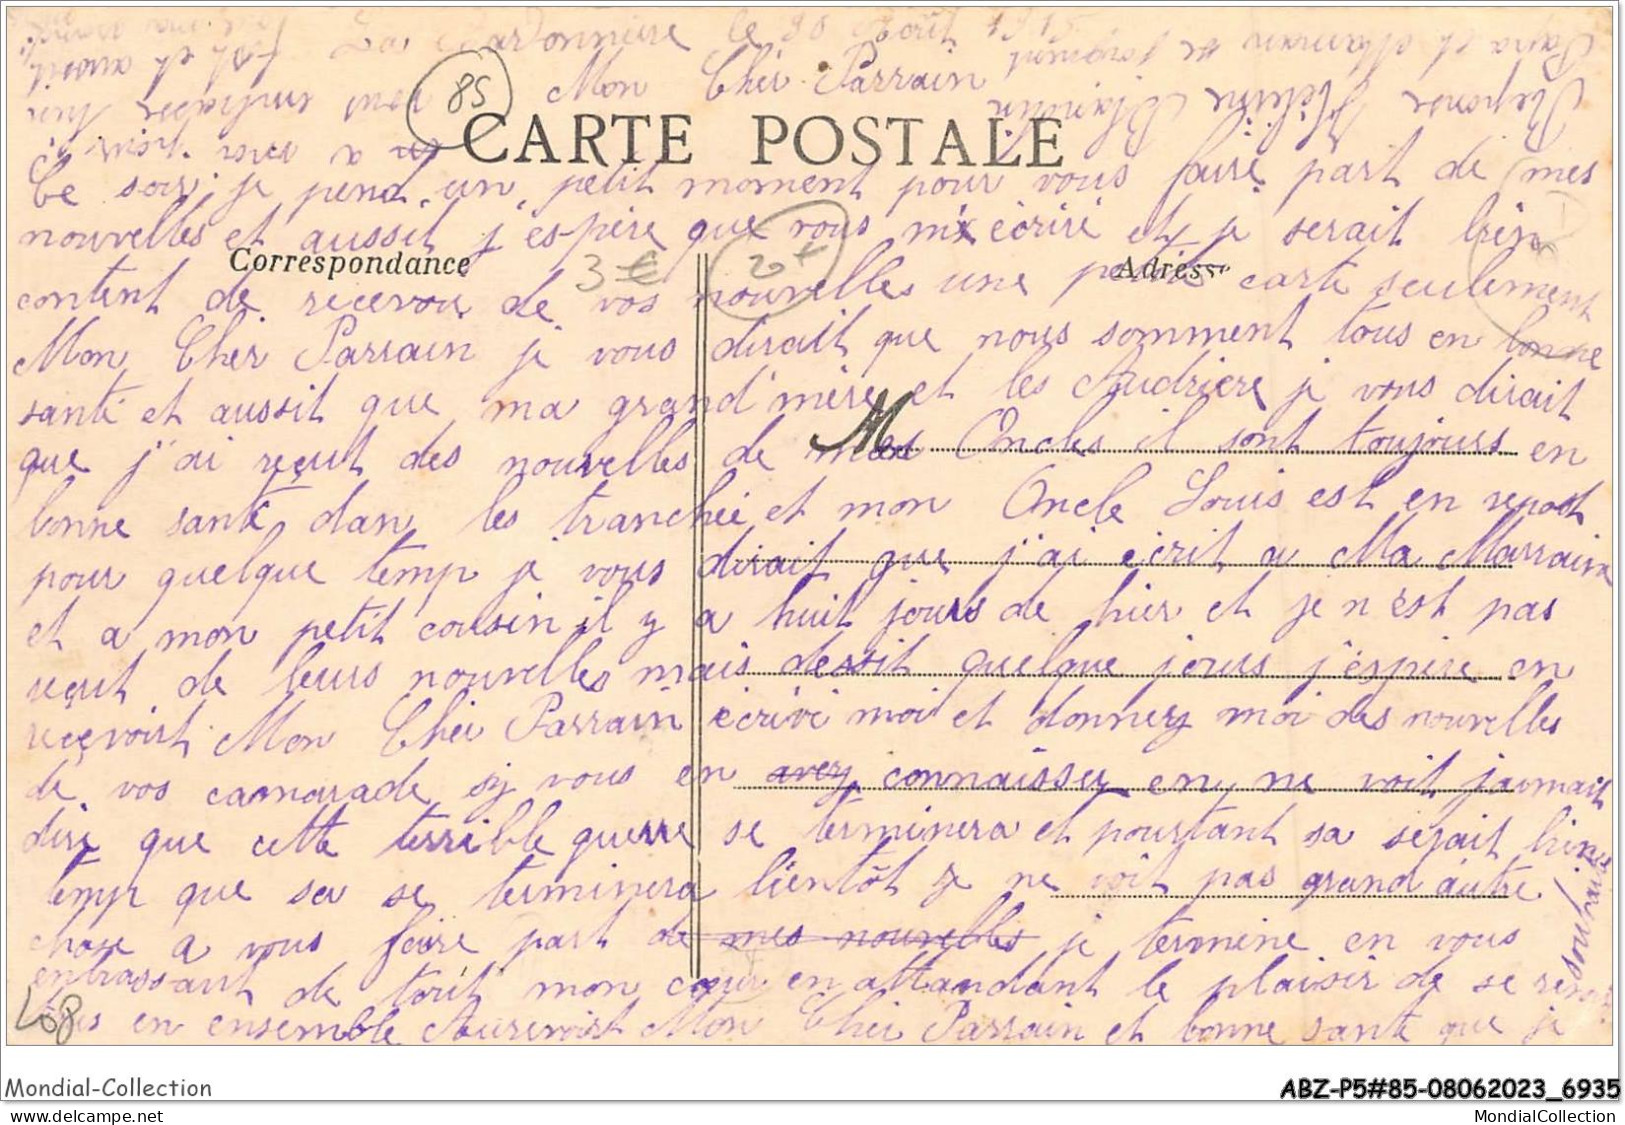 La Jardonnière le 20 Août 1915
Mon Cher Parrain
85
CARTE POSTALE
Ce soir je pend un petit moment pour vous faire part de mes
nouvelles et aussit j'espère que vous m'écriré et je serait bien
Correspondance
3 €
Adresse
content de recevoir de vos nouvelles une petite carte seulement
Mon Cher Parrain je vous dirait que nous somment tous en bonne
santé et aussit que ma grand'mère et les Audriere je vous dirait
que j'ai reçut des nouvelles de Mes Oncles il sont toujours en
bonne santé dan les tranchée et mon Oncle Louis est en repost
pour quelque temp je vous dirait que j'ai écrit a Ma Marraine
et a mon petit cousin il y a huit jours de hier et je n'est pas
reçut de leurs nouvelles mais dessit quelque jours j'espère en
reçevoirt Mon Cher Parrain écrivé moi et donnerz moi des nouvelles
de vos camarade sy vous en avez connaissez en ne voit jaumait
dire que cette terrible guerre se terminera et pourtant sa serait bien
temp que sa se terminera bientôt je ne voit pas grand autre
chose a vous faire part de mes nouvelles je termine en vous
enbrassant de tout mon cœur en attandant le plaisir de se
en ensemble Aurevoirt Mon Cher Parrain et bonne sante que je
souhaite
Papa et Maman se joignent
a moi pour vous embrasser bien
fort et aussit
Reponse
L08
Mondial-Collection
ABZ-P5#85-08062023_6935
Uploaded by akpcartes.com
MondialCollection